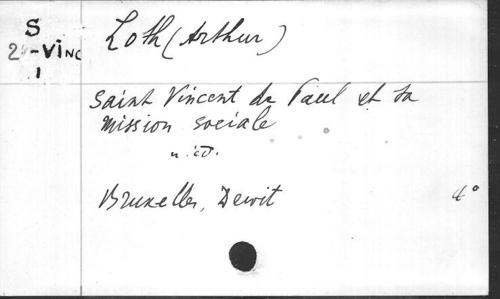 S
2 -VINC
1
Loth (Arthur)
Saint Vincent de Paul et sa
mission sociale
Bruxelles, Dewit 4°